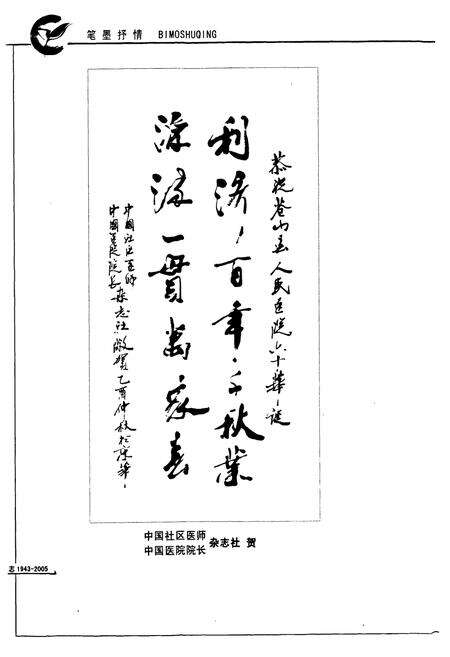 笔墨抒情 BIMOSHUQING
恭祝苍山县人民医院六十華诞
利济百年千秋業
一貫萬家春
中國社区医师
中國医院院长
杂志社敬贺 乙酉仲秋於京華
中国社区医师
中国医院院长
杂志社 贺
志 1943-2005